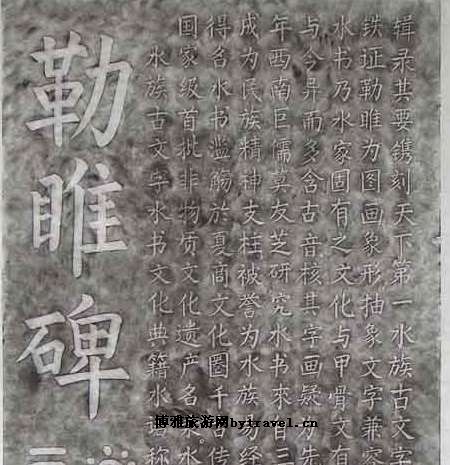 勒睢碑
水族古文字水书文化典籍水语称
国家级首批非物质文化遗产名录水
得名水书滥觞於夏商文化圈千古传
成为民族精神支柱被誉为水族易经
年西南巨儒莫友芝研究水书來自三
与今异而多含古音核其字画疑为先
水书乃水家固有之文化与甲骨文有
铁证勒睢为图画象形抽象文字兼容
辑录其要镌刻天下第一水族古文字
博雅旅游网bytravel.cn